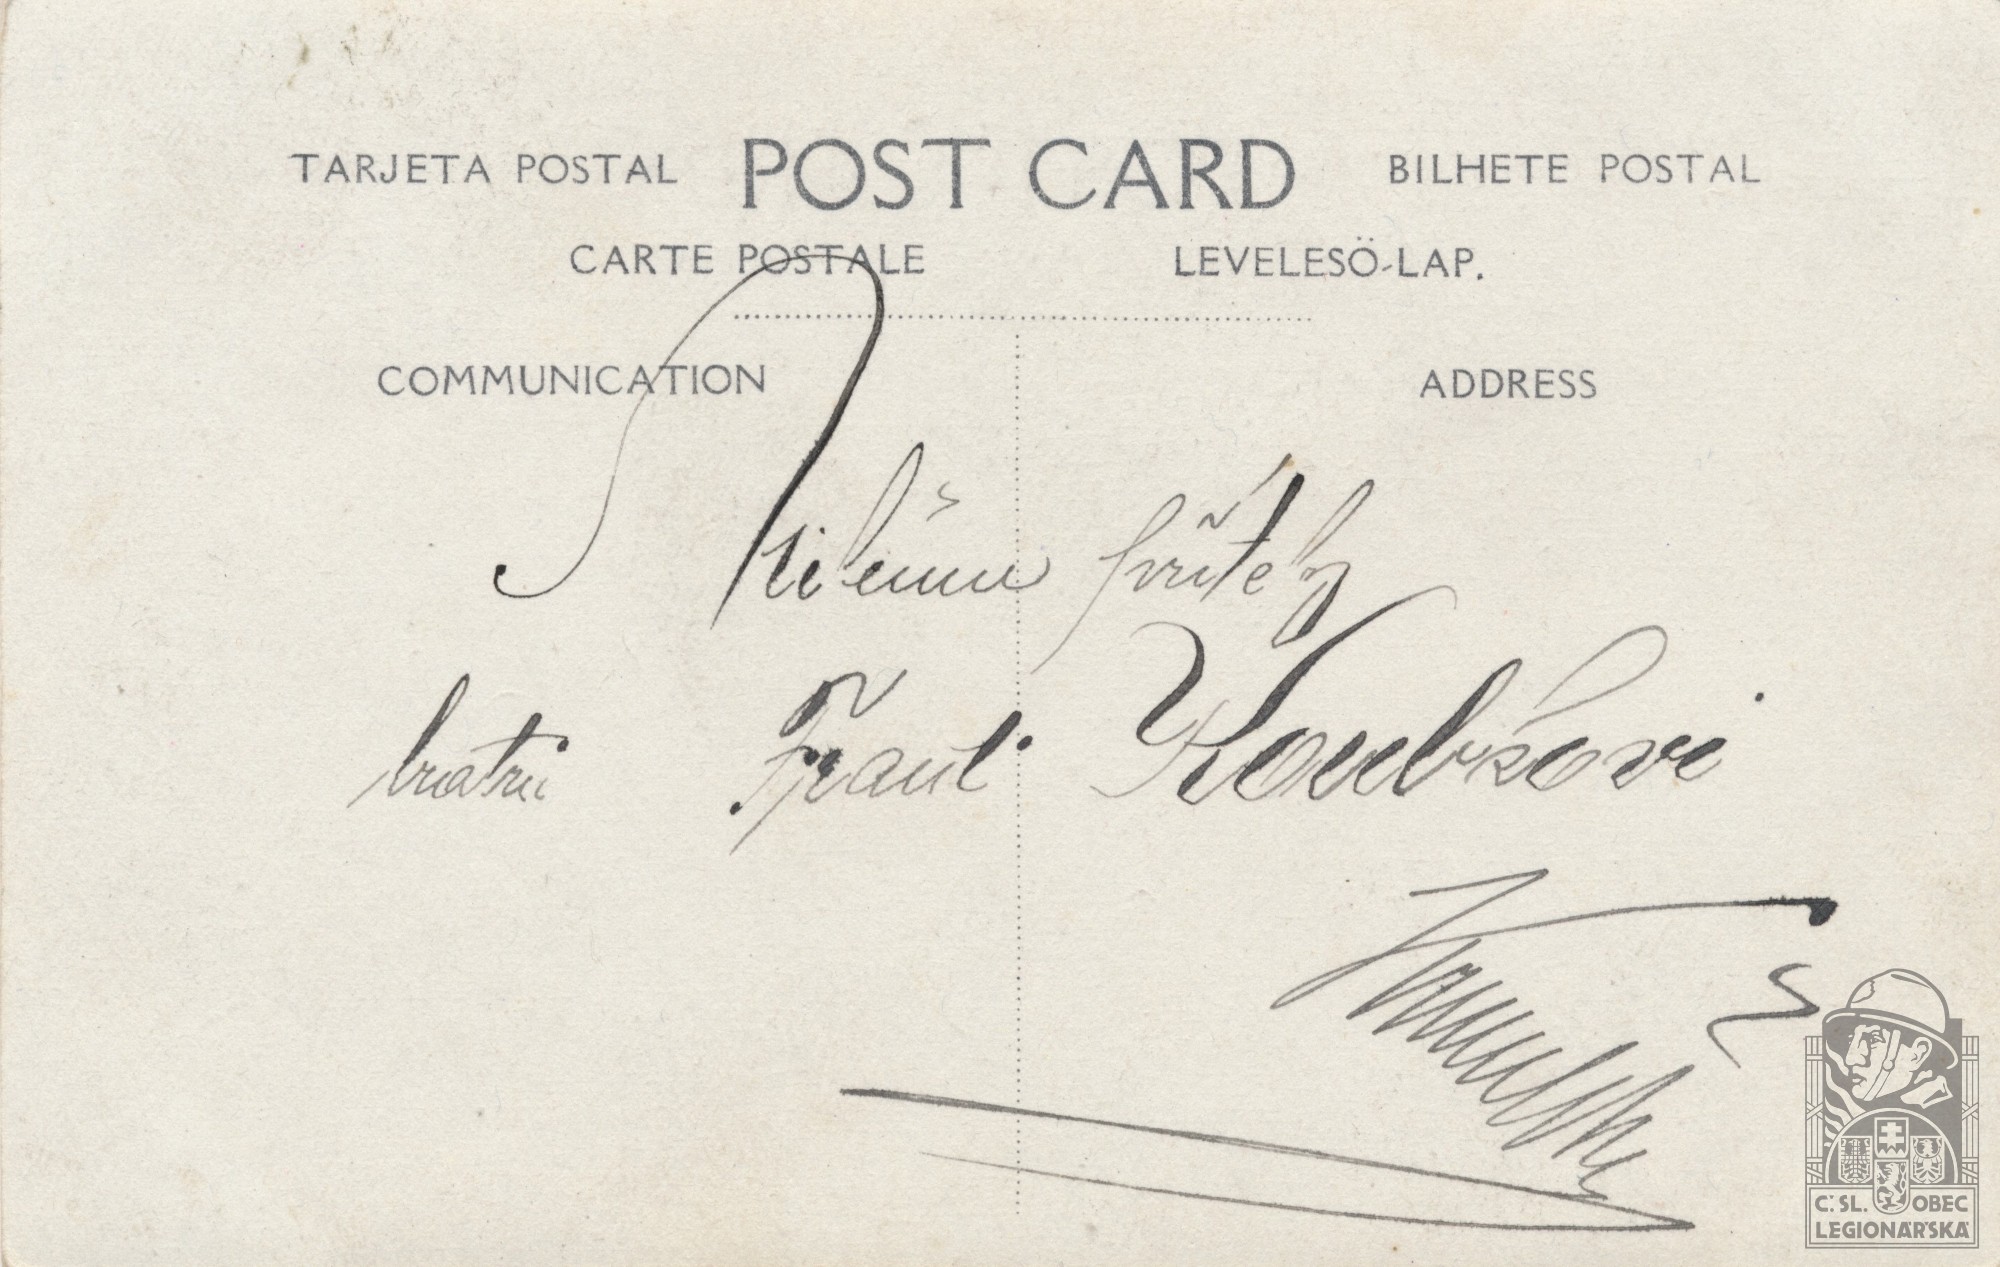 TARJETA POSTAL POST CARD BILHETE POSTAL
CARTE POSTALE LEVELESÖ-LAP.
COMMUNICATION ADDRESS
Milému příteli
bratru Frant. Koubkovi
Č. SL. OBEC
LEGIONÁŘSKÁ